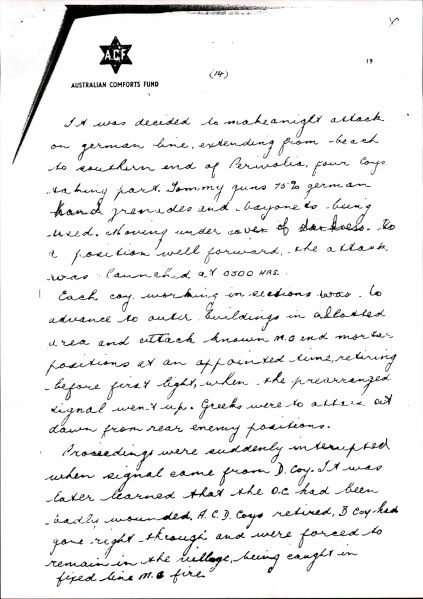 A.C.F
AUSTRALIAN COMFORTS FUND
(14)
19
It was decided to make a night attack
on german line, extending from beach
to southern end of Perivolia, four Coys
taking part. Tommy guns 75% german
hand grenades and bayonets being
used. Moving under cover of darkness. to
a position well forward, the attack
was launched at 0300 HRS.
Each coy. working in sections was to
advance to outer buildings in allotted
area and attack known M.G and mortar
positions at an appointed time, retiring
before first light, when the prearranged
signal went up. Greeks were to attack at
dawn from rear enemy positions.
Proceedings were suddenly interupted
when signal came from D. Coy. It was
later learned that the O.C had been
badly wounded. A.C.D. Coys retired, B Coy had
gone right through and were forced to
remain in the village, being caught in
fixed line M.G fire.